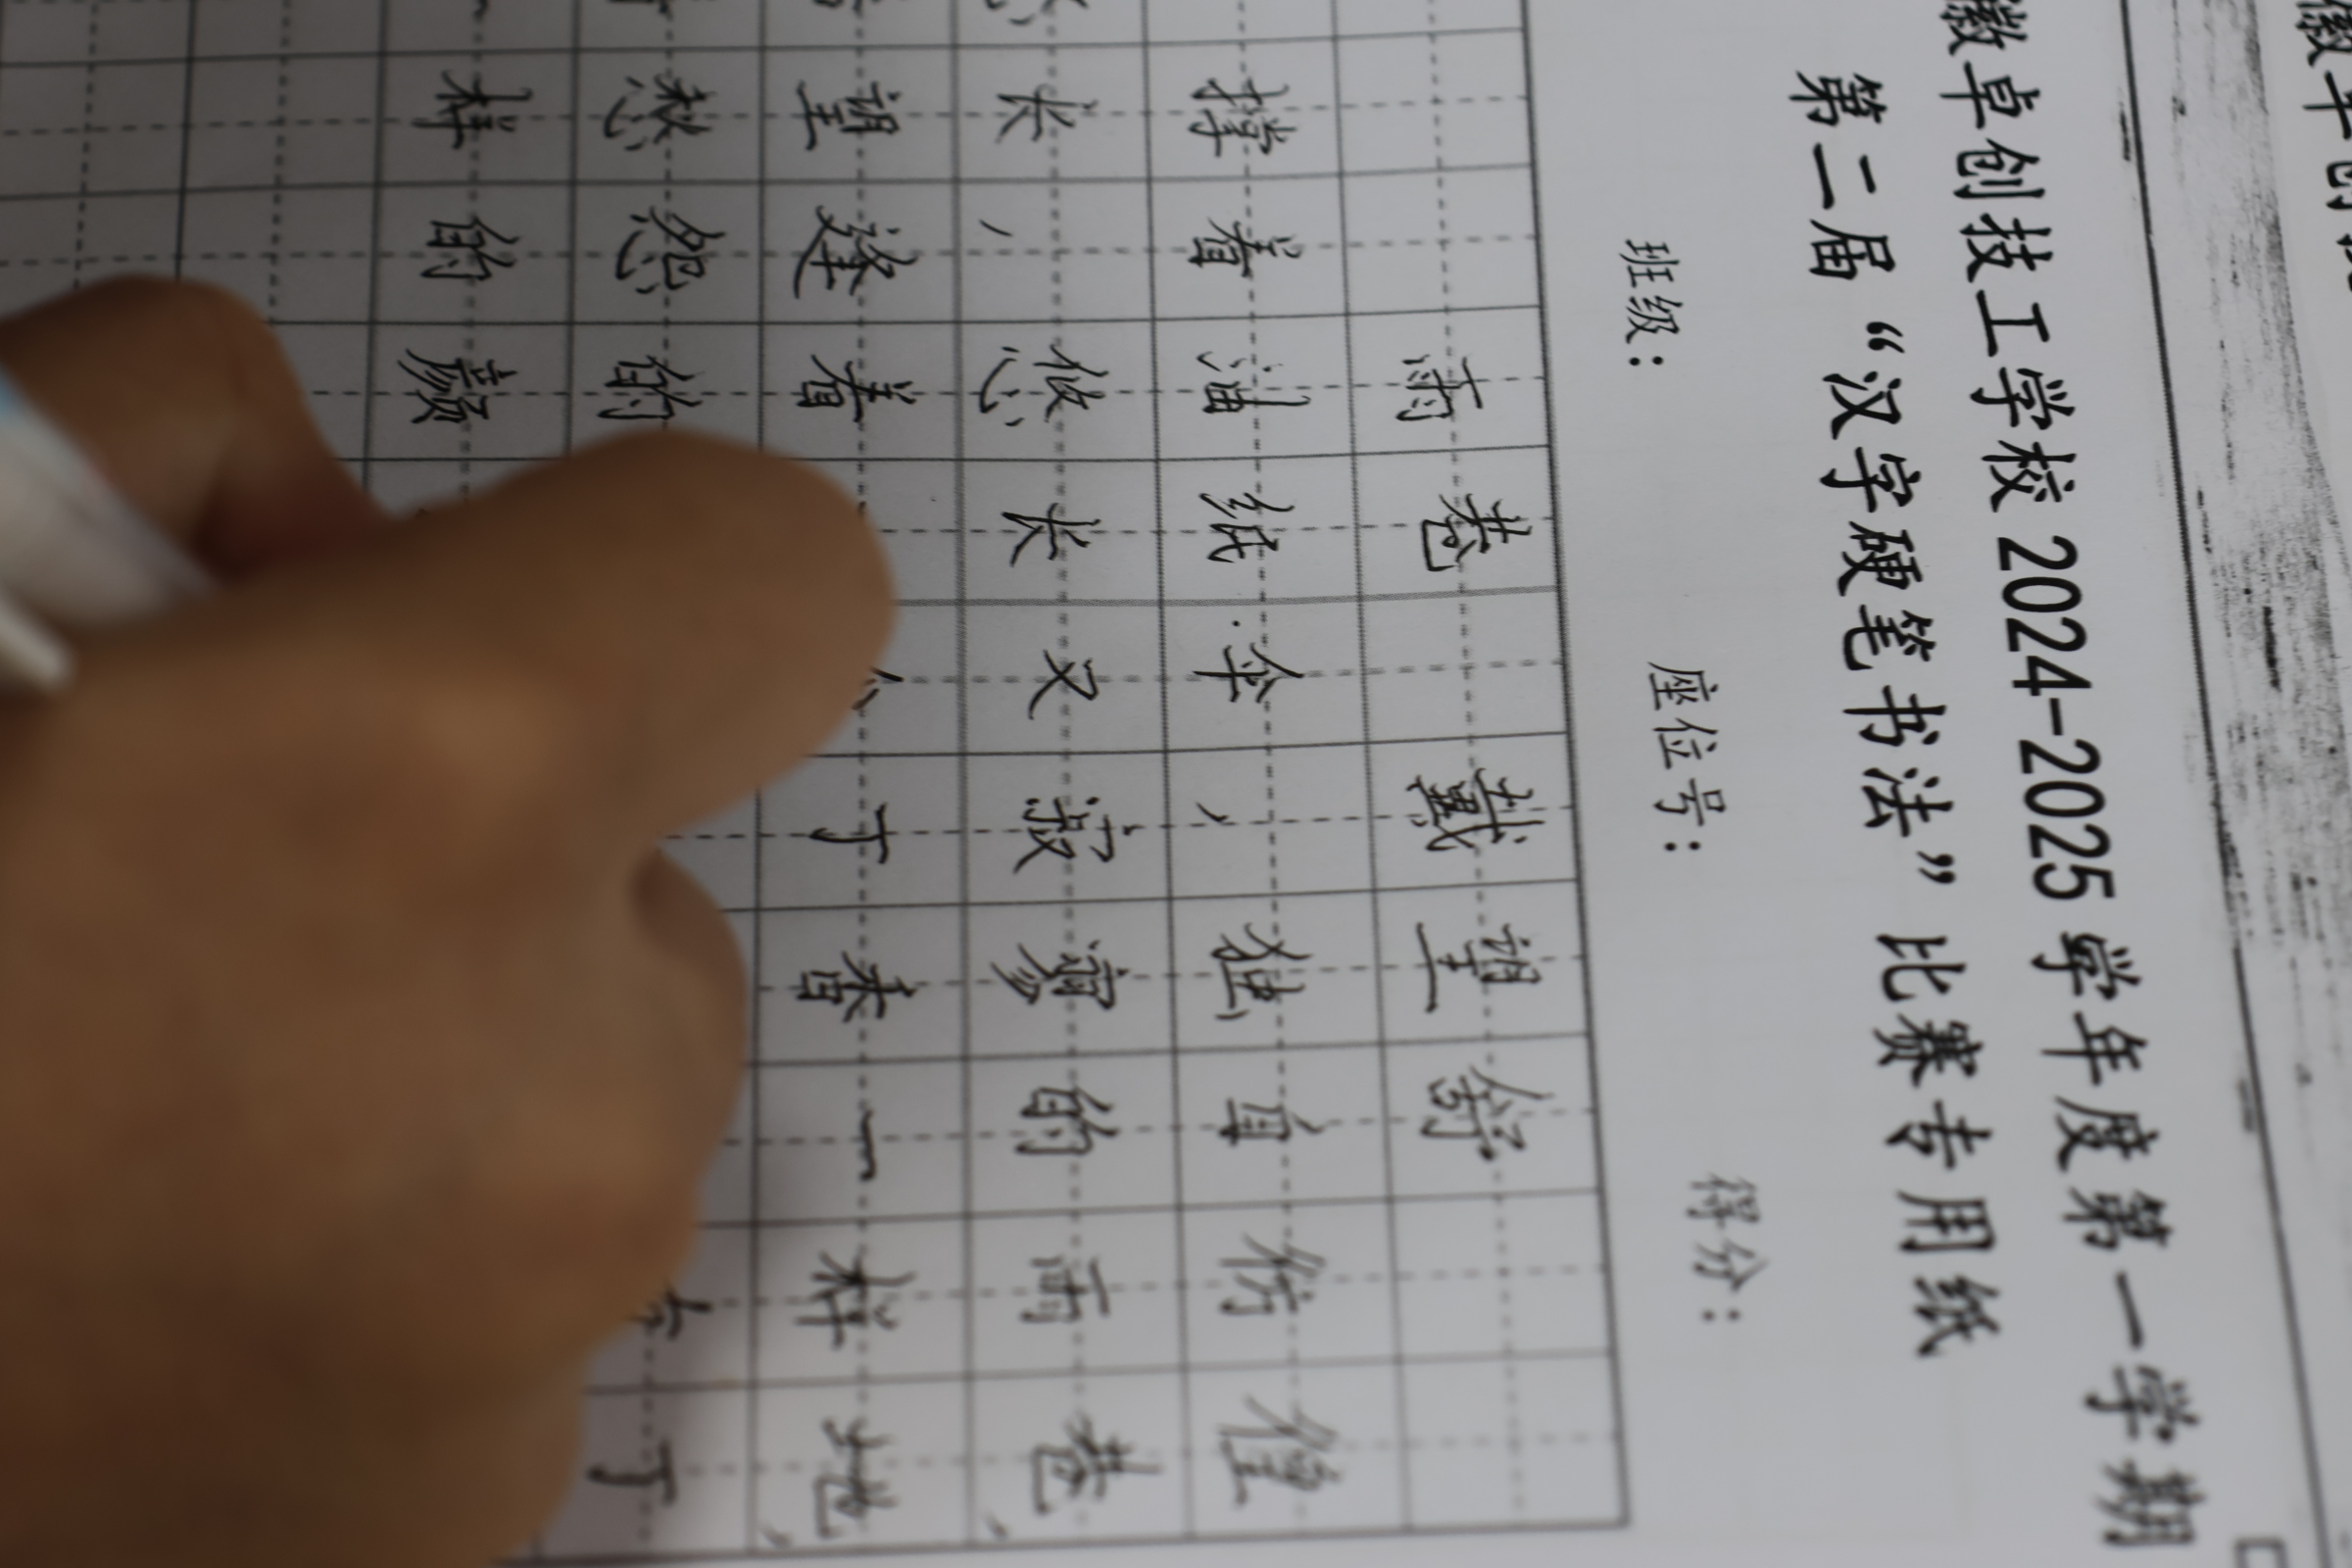 徽卓创技工学校 2024-2025 学年度第一学期
第二届“汉字硬笔书法”比赛专用纸
班级： 座位号： 得分：
雨巷 戴望舒
撑着油纸伞，独自彷徨
长，悠长又寂寥的雨巷，
望逢着 个丁香一样地，
愁怨的 丁
样的颜